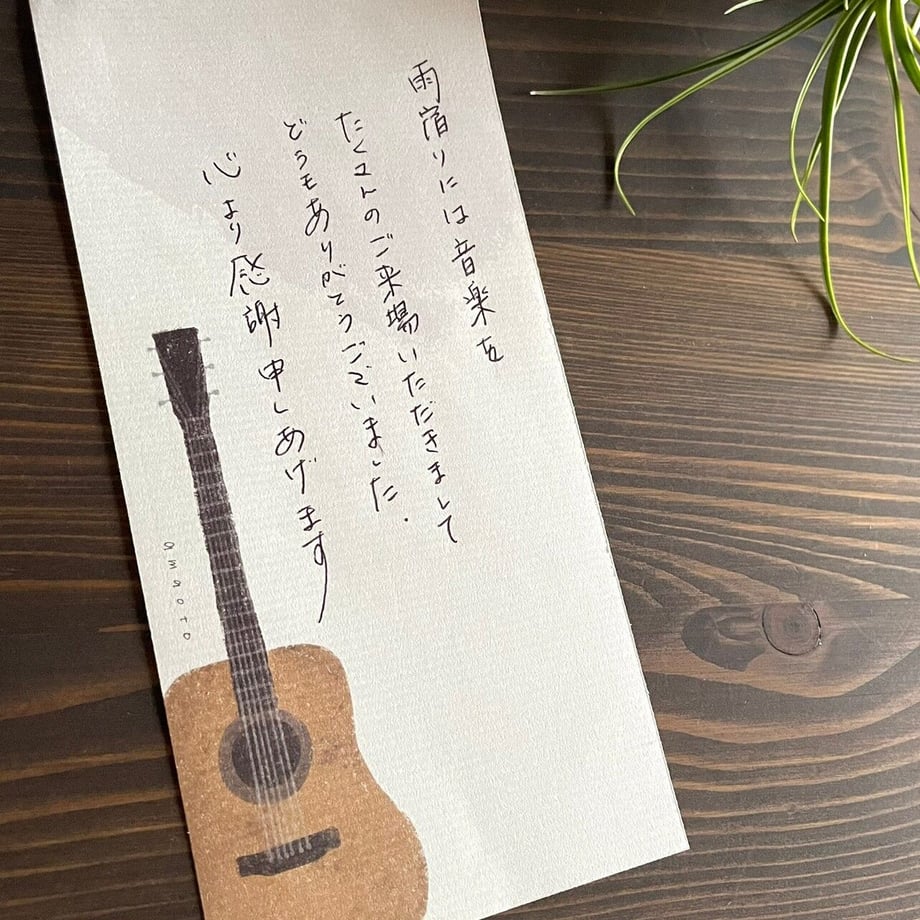 雨宿りには音楽を
たくさんのご来場いただきまして
どうもありがとうございました.
心より感謝申しあげます
amaoto